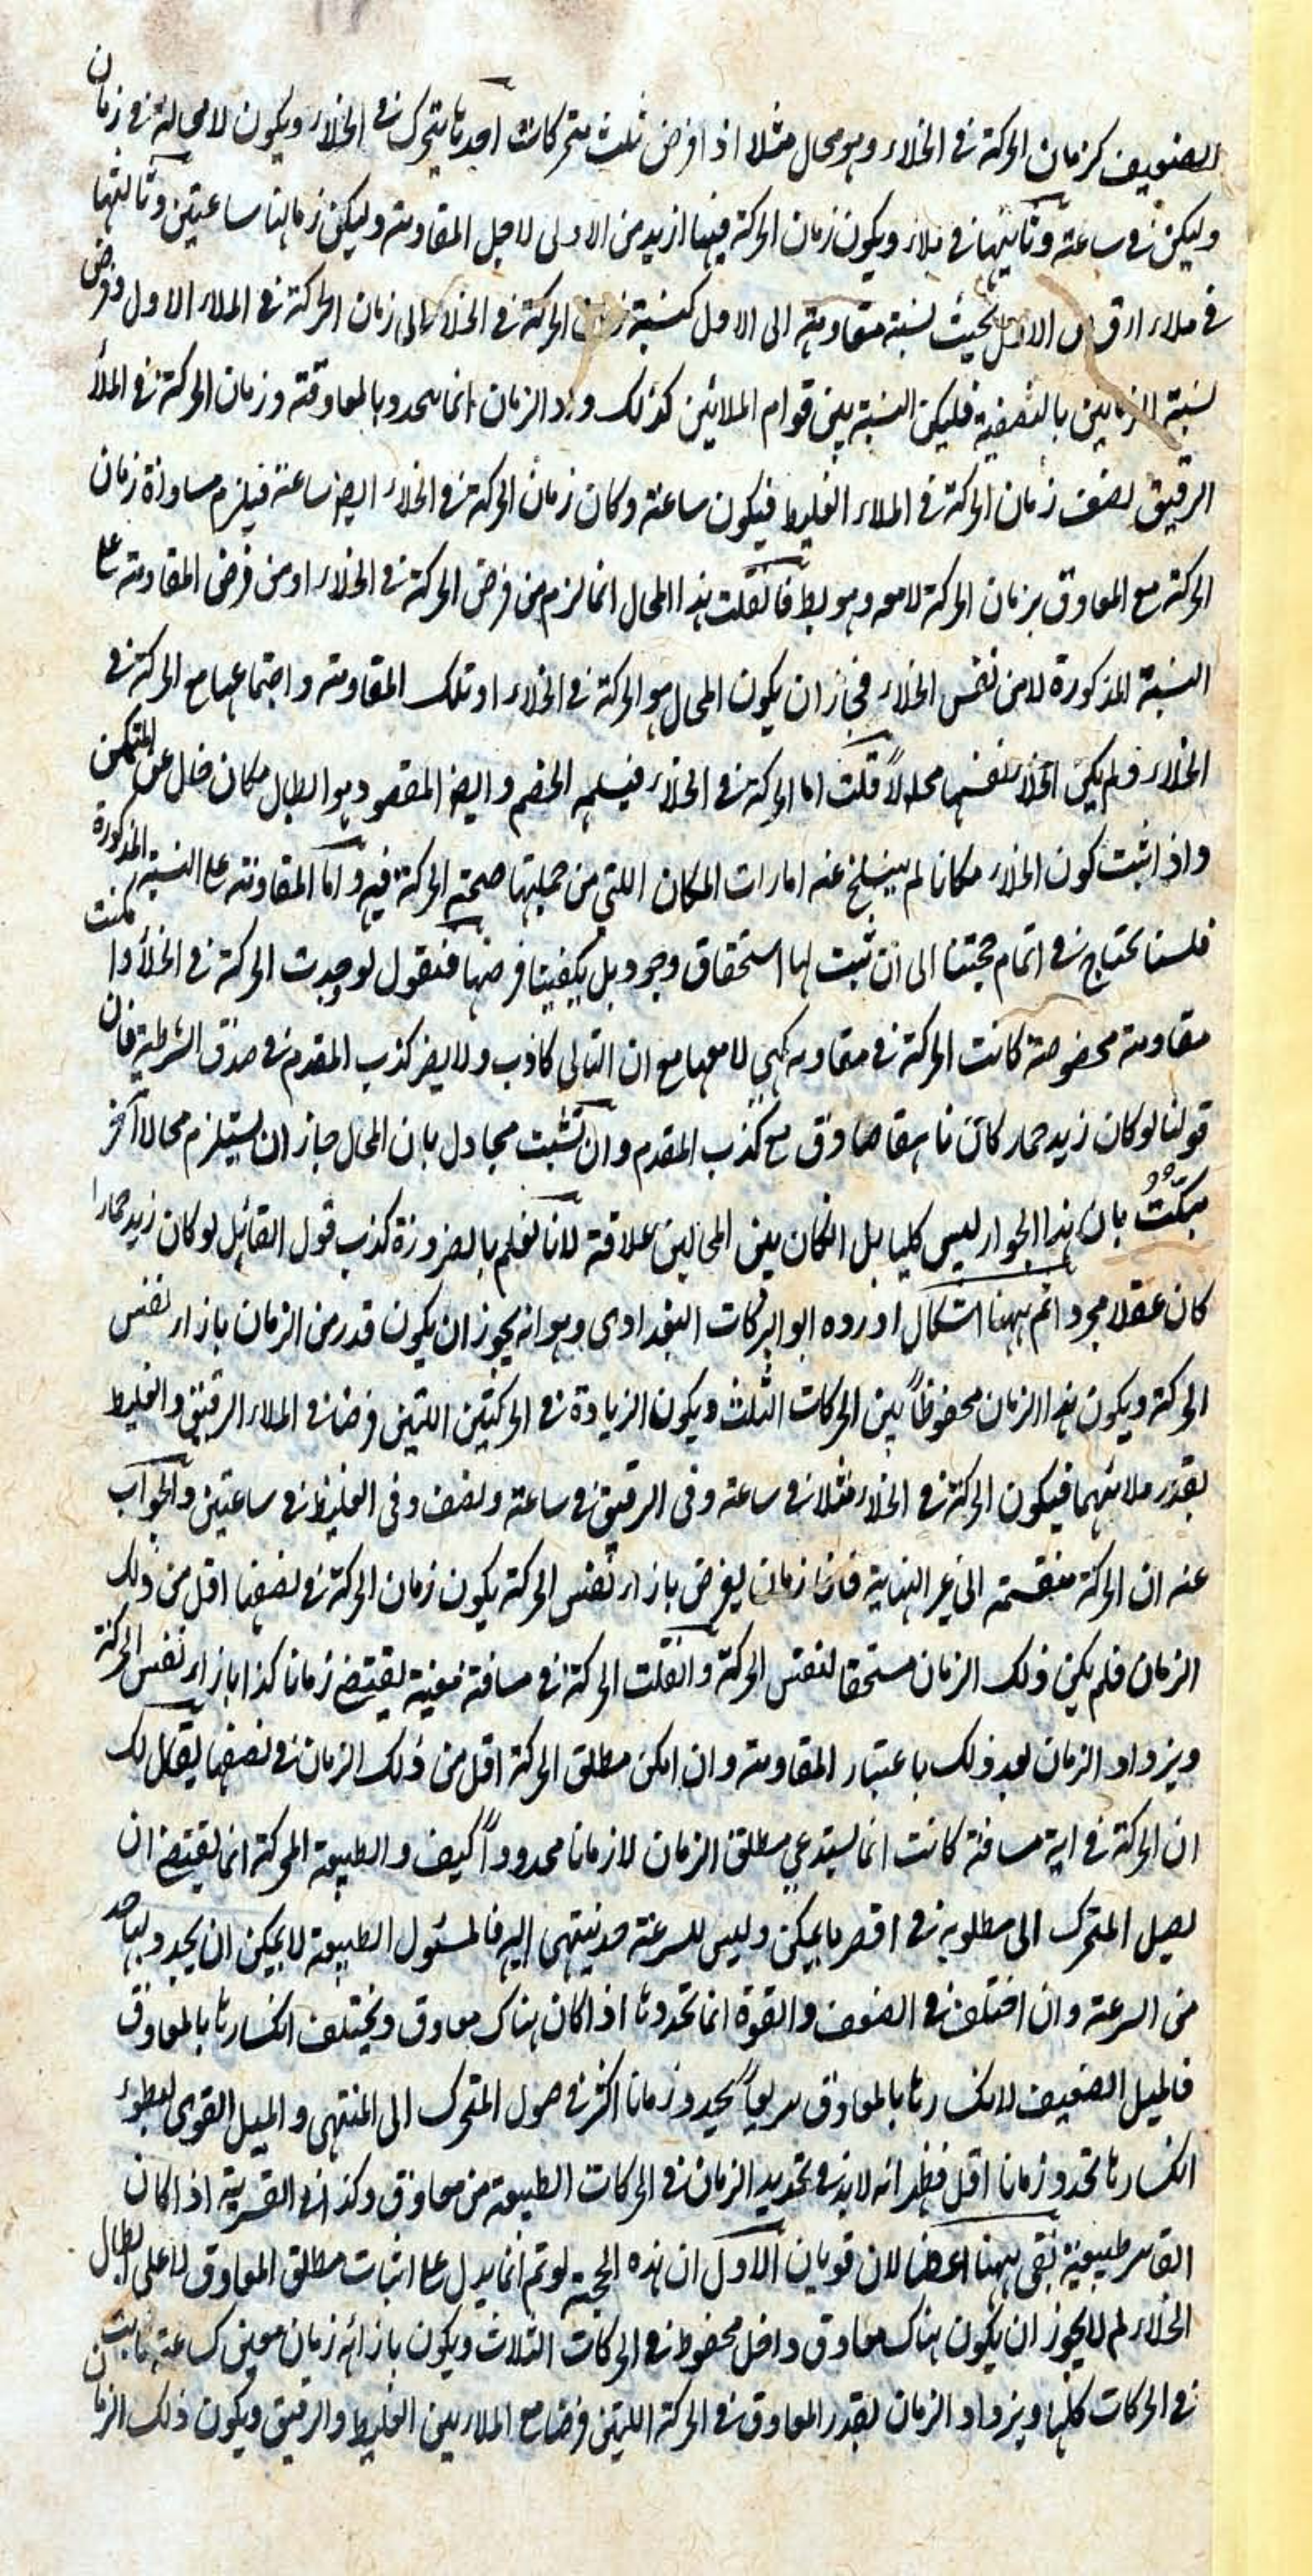 الضعيف كزمان الحركة في الخلاء وهو محال مثلا اذا فرض ثلث متحركات احدها يتحرك في الخلاء ويكون لا محالة في زمان
وليكن في ساعة وثانيها في ملاء ويكون زمان الحركة فيها ازيد من الاولى لاجل المقاومة وليكن زمانها ساعتين وثالثها
في ملاء ارق من الاول بحيث نسبة مقاومته الى الاول كنسبة زمان الحركة في الخلاء الى زمان الحركة في الملاء الاول وفرض
نسبة الزمانين بالنصفية فليكن النسبة بين قوام الملائين كذلك و الزمان انما يتحدد بالمعاوقة وزمان الحركة في الملأ
الرقيق نصف زمان الحركة في الملاء الغليظ فيكون ساعة وكان زمان الحركة في الخلاء ايضا ساعة فيلزم مساواة زمان
الحركة مع المعاوق بزمان الحركة لا معه وهو بط فان قلت هذا المحال انما لزم من فرض الحركة في الخلاء او من فرض المقاومة على
النسبة المذكورة لا من نفس الخلاء فجاز ان يكون المحال هو الحركة في الخلاء او تلك المقاومة واجتماعها مع الحركة في
الخلاء ولم يكن الخلاء بنفسها محالاً قلت اما الحركة في الخلاء فيسلمه الخصم وايضا المقصود هو ابطال مكان خال عن المتمكن
واذا ثبت كون الخلاء مكانا لم ينسلخ عنه امارات المكان اللتي من جملتها صحة الحركة فيه واما المقاومة على النسبة المذكورة
فلسنا نحتاج في اتمام حجتنا الى ان نثبت لها استحقاق وجود بل يكفينا فرضها فنقول لو وجدت الحركة في الخلأ وامكنت
مقاومة مخصوصة كانت الحركة في مقاومه كهي لا معها مع ان التالي كاذب ولا يضر كذب المقدم في صدق الشرطية فان
قولنا لو كان زيد حمار كان ناهقا صادق مع كذب المقدم وان تشبت مجادل بان المحال جاز ان يستلزم محالا آخر
بكتت بان هذا الجواز ليس كليا بل انكان بين المحالين علاقة لانا نعلم بالضرورة كذب قول القائل لو كان زيد حمارا
كان عقلا مجردا ثم ههنا اشكال اورده ابو البركات البغدادى وهو انه يجوز ان يكون قدر من الزمان بازاء نفس
الحركة ويكون هذا الزمان محفوظاً بين الحركات الثلث ويكون الزيادة في الحركتين اللتين فرضنا في الملاء الرقيق والغليظ
بقدر ملائهما فيكون الحركة في الخلاء مثلا في ساعة وفى الرقيق في ساعة ونصف وفى الغليظ في ساعتين والجواب
عنه ان الحركة منقسمة الى غير النهاية فان زمان يفرض بازاء نفس الحركة يكون زمان الحركة في نصفها اقل من ذلك
الزمان فلم يكن ذلك الزمان مستحقا لنفس الحركة وانقلت الحركة في مسافة معينة يقتضي زمانا كذا بازاء نفس الحركة
ويزداد الزمان بعد ذلك باعتبار المقاومة وان امكن مطلق الحركة اقل من ذلك الزمان في نصفها يقال لك
ان الحركة في اية مسافة كانت انما يستدعي مطلق الزمان لا زمانا محدوداً كيف والطبيعة المحركة انما يقتضي ان
يصل المتحرك الى مطلوبه في اقصر ما يمكن وليس للسرعة حد ينتهى اليه فالمسئول الطبيعة لا يمكن ان يحدد بها حد
من السرعة وان اختلف في الضعف والقوة انما تحددها اذا كان هناك معاوق ويختلف انكسارها بالمعاوق
فالميل الضعيف لانكسارها بالمعاوق سريعاً يحدد زمانا اكثر في وصول المتحرك الى المنتهى والميل القوى لبطوء
انكسارها تحدد زمانا اقل فظهر انه لا بد في تحديد الزمان في الحركات الطبيعة من معاوق وكذا في القسرية اذا كان
القاسر طبيعية بقى ههنا اعضالان قويان الاول ان هذه الحجية لو تم انما يدل على اثبات مطلق المعاوق لا على ابطال
الخلاء لم لا يجوز ان يكون هناك معاوق داخل محفوظ في الحركات الثلاث ويكون بازائه زمان معين كساعة ثابت
في الحركات كلها ويزداد الزمان بقدر المعاوق في الحركة اللتين فرضنا مع الملاء بين الغليظ والرقيق ويكون ذلك الزمان